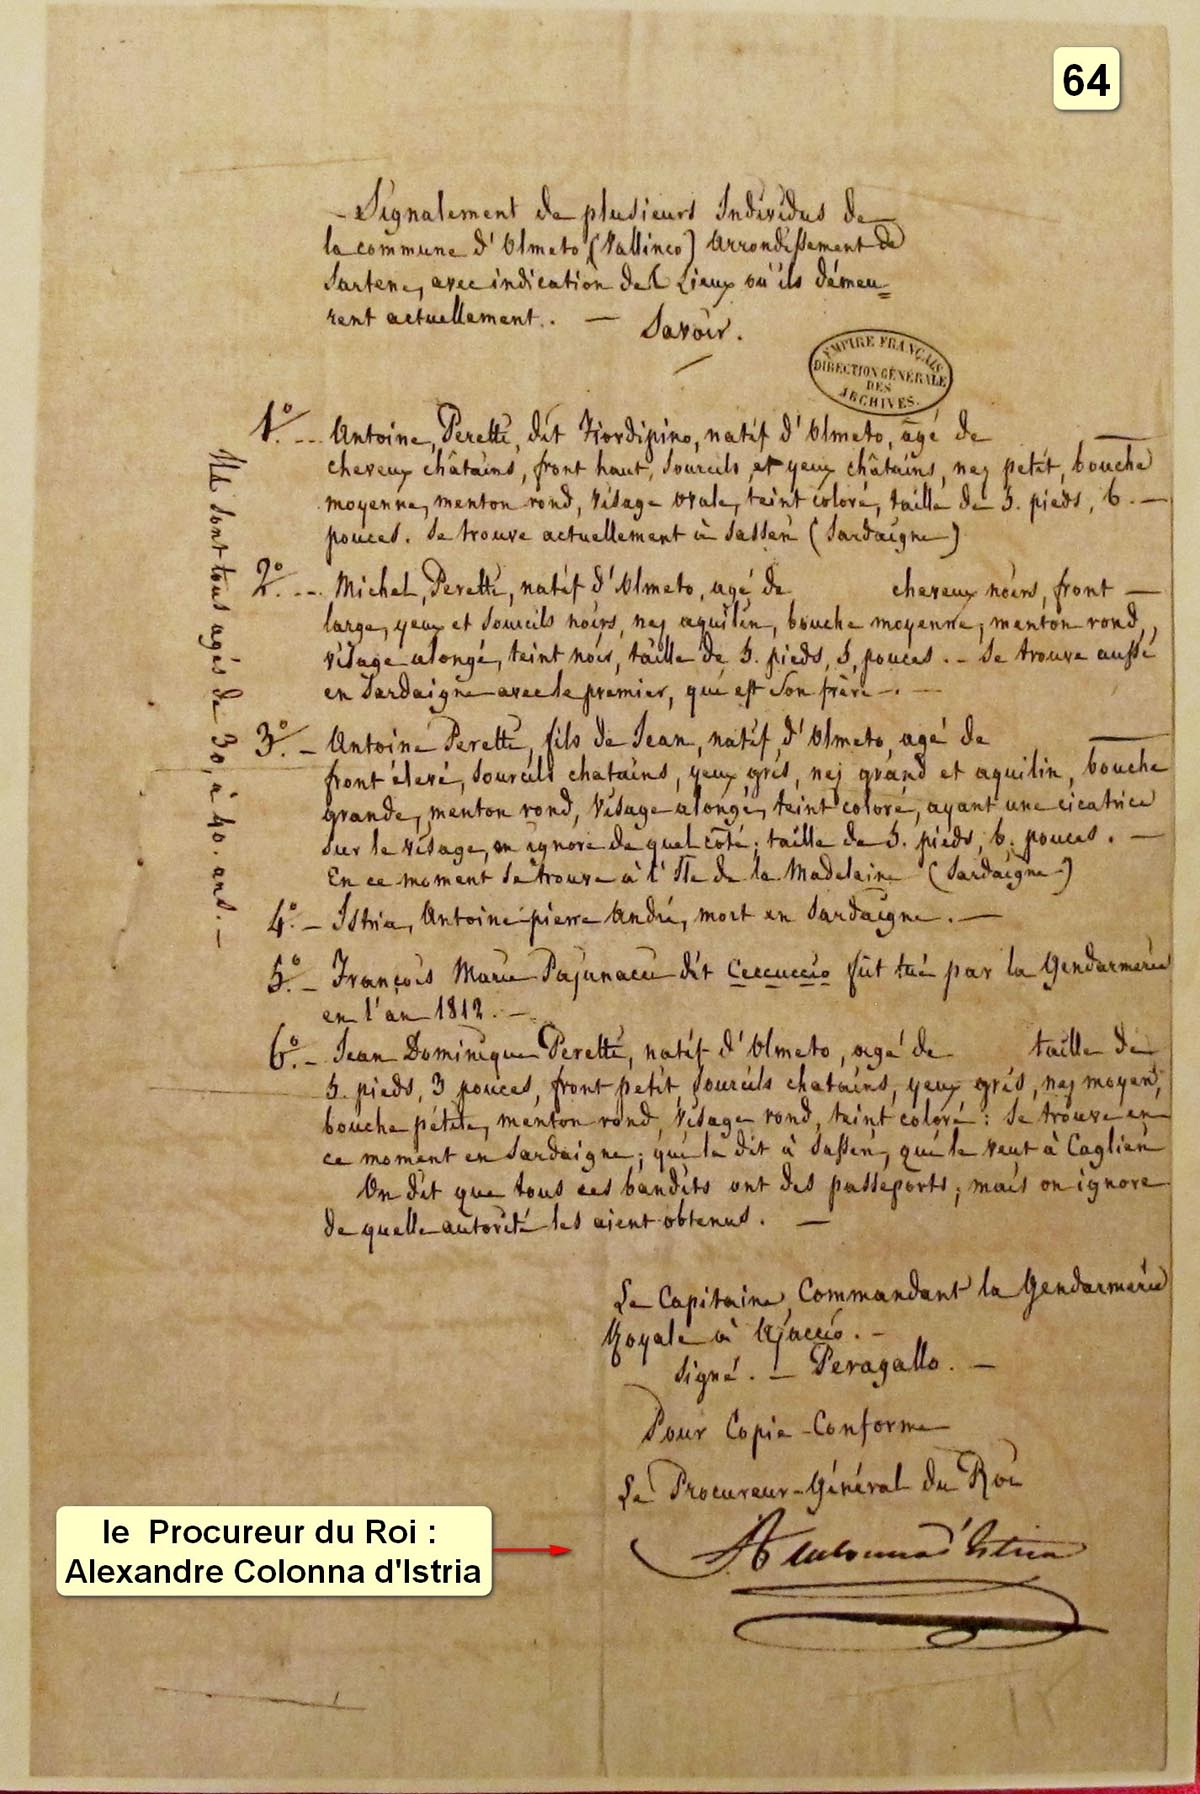 64
- Signalement de plusieurs Individus de
la commune d'Olmeto (Vallinco) Arrondissement de
Sartene, avec indication des Lieux où ils démeu=
rent actuellement. — Savoir.
EMPIRE FRANÇAIS
DIRECTION GÉNÉRALE
DES
ARCHIVES.
Ils sont tous agés de 30, à 40. ans. —
1º. -- Antoine, Peretti, dit Fiordipino, natif d'Olmeto, âgé de —
cheveux châtains, front haut, sourcils et yeux châtains, nez petit, bouche
moyenne, menton rond, visage ovale, teint coloré, taille de 5. pieds, 6. —
pouces. Se trouve actuellement à Sassari (Sardaigne)
2º. -- Michel, Peretti, natif d'Olmeto, agé de cheveux noirs, front —
large, yeux et sourcils noirs, nez aquilin, bouche moyenne, menton rond,
visage alongé, teint noir, taille de 5. pieds, 5, pouces. - Se trouve aussi
en Sardaigne avec le premier, qui est son frère -. —
3º. - Antoine Peretti, fils de Jean, natif d'Olmeto, agé de —
front élevé, sourcils chatains, yeux gris, nez grand et aquilin, bouche
grande, menton rond, visage alongé, teint coloré, ayant une cicatrice
sur le visage, on ignore de quel coté; taille de 5. pieds, 6. pouces. —
En ce moment se trouve à l'Ile de la Madelaine (Sardaigne)
4º. - Istria, Antoine pierre André, mort en Sardaigne. —
5º. - François Marie dit Ceccuccio fût tué par la Gendarmerie
en l'an 1812. -
6º. - Jean Dominique Peretti, natif d'Olmeto, agé de taille de
5. pieds, 3 pouces, front petit, sourcils chatains, yeux gris, nez moyen,
bouche pétite, menton rond, visage rond, teint coloré: se trouve en
ce moment en Sardaigne; qui le dit à Sassari, qui le veut à Cagliari
On dit que tous ces bandits ont des passeports; mais on ignore
de quelle autorité les aient obtenus. —
Le Capitaine, Commandant la Gendarmerie
Royale à Ajaccio. -
signé. — Peragallo. —
Pour Copie - Conforme
Le Procureur-Général du Roi
A Colonna d'Istria
le Procureur du Roi :
Alexandre Colonna d'Istria